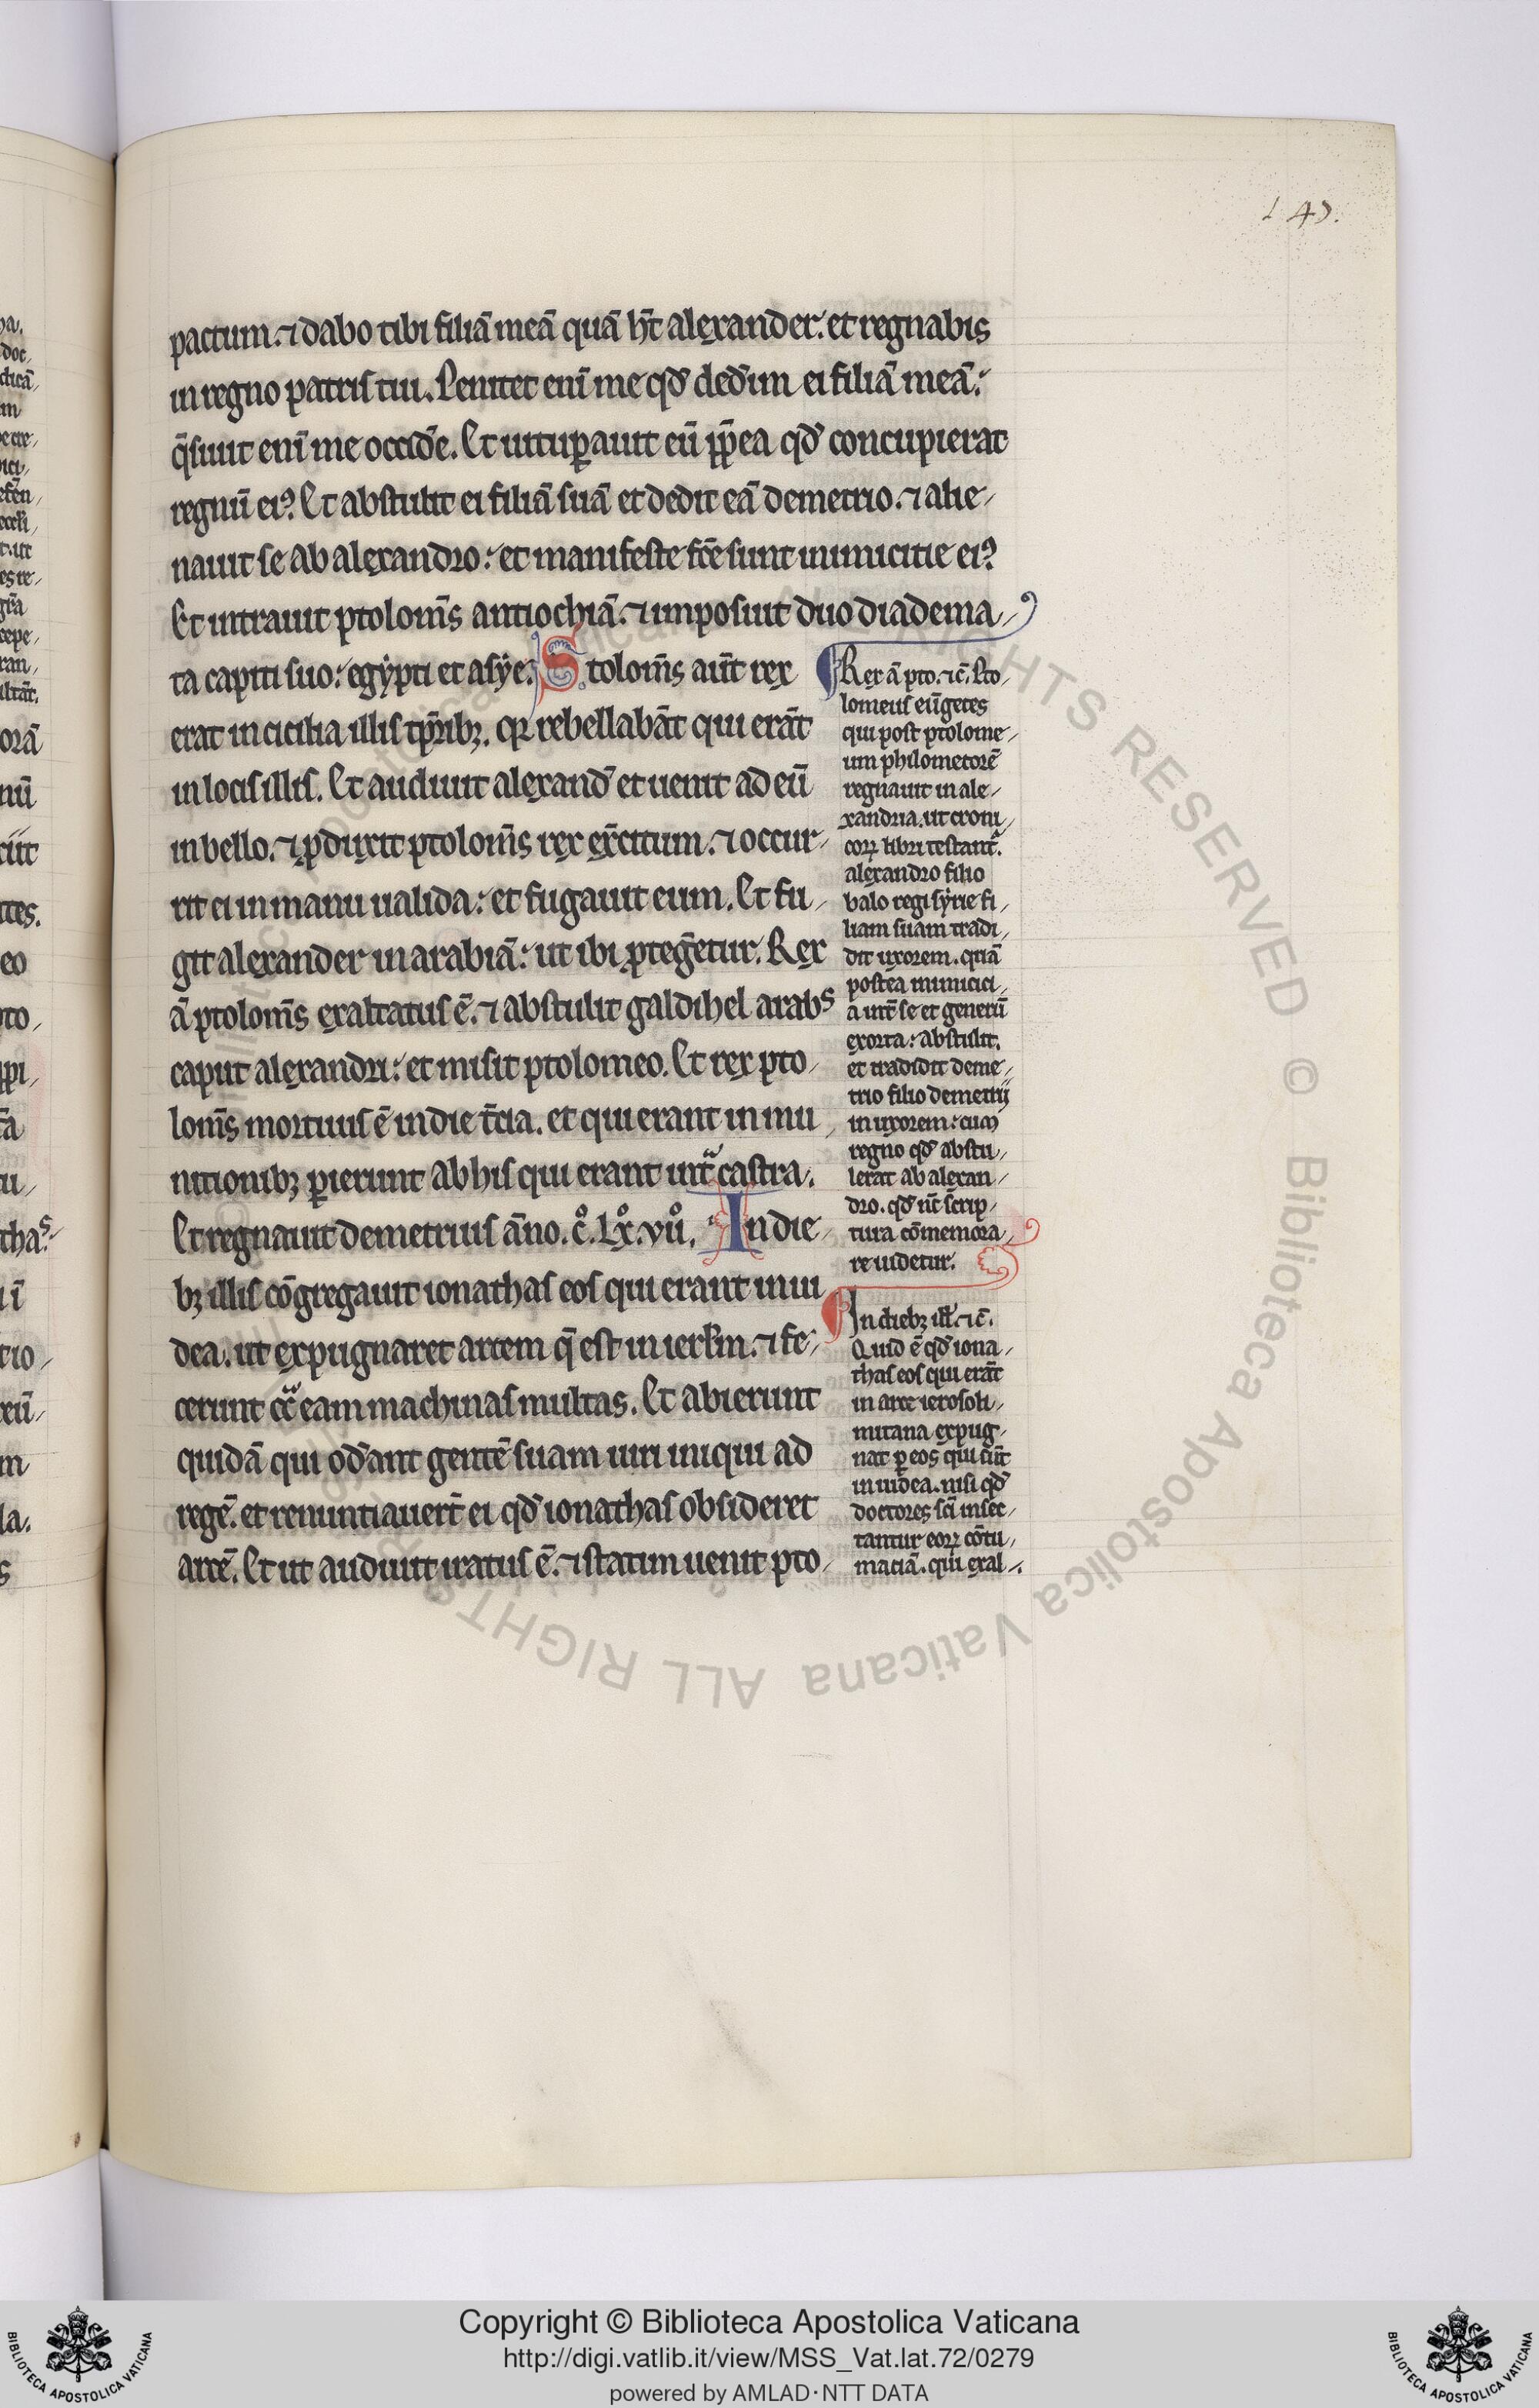 147.
pactum. ⁊ dabo tibi filiā meā quā hīt alexander. et regnabis
in regno patris tui. Penitet eni̅ me qd̕ ded̕im ei filiā meā.
q̄siuit eni̅ me occid̕e. Et uitup̱auit eū pp̄ea qd̕ concupierat
regnū ei᾽. Et abstulit ei filiā suā et dedit eā demetrio. ⁊ alie/
nauit se ab alexandro. et manifeste fc̄e sunt inimicitie ei᾽.
Et intrauit ptolom̄s antiochiā. ⁊ imposuit duo diadema/
ta capiti suo. egypti et asye. Stolom̄s aūt rex
erat in cicilia illis tp̄ribꝫ. qꝛ rebellabāt qui erāt
in locis illis. Et audiuit alexand̕ et uenit ad eū
in bello. ⁊ ꝓduxit ptolom̄s rex ex̄citum. ⁊ occur/
rit ei in manu ualida. et fugauit eum. Et fu/
git alexander in arabiā. ut ibi ꝓteg̕etur. Rex
ā ptolom̄s exaltatus ē. ⁊ abstulit galdihel arabs
caput alexandri. et misit ptolomeo. Et rex pto/
lom̄s mortuus ē in die t̄cia. et qui erant in mu/
nitionibꝫ ꝑierunt ab his qui erant int̄ᵃ castra.
Et regnauit demetrius āno. c̊. lx̊. vii̊. In die/
bꝫ illis cōgregauit ionathas eos qui erant in iu
dea. ut expugnaret arcem q̄ est in ierl̄m. ⁊ fe/
cerunt cᵃ̄ eam machinas multas. Et abierunt
quidā qui od̕ant gentē suam uiri iniqui ad
regē. et renuntiauer̄t ei qd̕ ionathas obsideret
arcē. Et ut audiuit iratus ē. ⁊ statim uenit pto/
Rex ā pto. ⁊c̄. Pto/
lomeus eūgetes
qui post ptolome/
um philometorē
regnauit in ale/
xandria. ut croni/
coꝝ libri testant᷑.
alexandro filio
balo regi syrie fi/
liam suam tradi/
dit uxorem. quā
postea inimici/
a int̄ se et generū
exorta. abstulit.
et tradidit deme/
trio filio demetrij
in uxorem. cum
regno qd̕ abstu/
lerat ab alexan/
dro. qd̕ nc̄ scrip/
tura cōmemora/
re uidetur.
In diebꝫ ill̕. ⁊c̄.
Quid ē qd̕ iona/
thas eos qui erāt
in arce ierosoli/
mitana expug/
nat ꝑ eos qui sūt
in iudea. nisi qd̕
doctores sc̄i insec/
tantur eoꝝ cōtu/
maciā. qui exal/
Copyright © Biblioteca Apostolica Vaticana
http://digi.vatlib.it/view/MSS_Vat.lat.72/0279
powered by AMLAD·NTT DATA
BIBLIOTECA APOSTOLICA VATICANA
BIBLIOTECA APOSTOLICA VATICANA
© Biblioteca Apostolica Vaticana ALL RIGHTS RESERVED